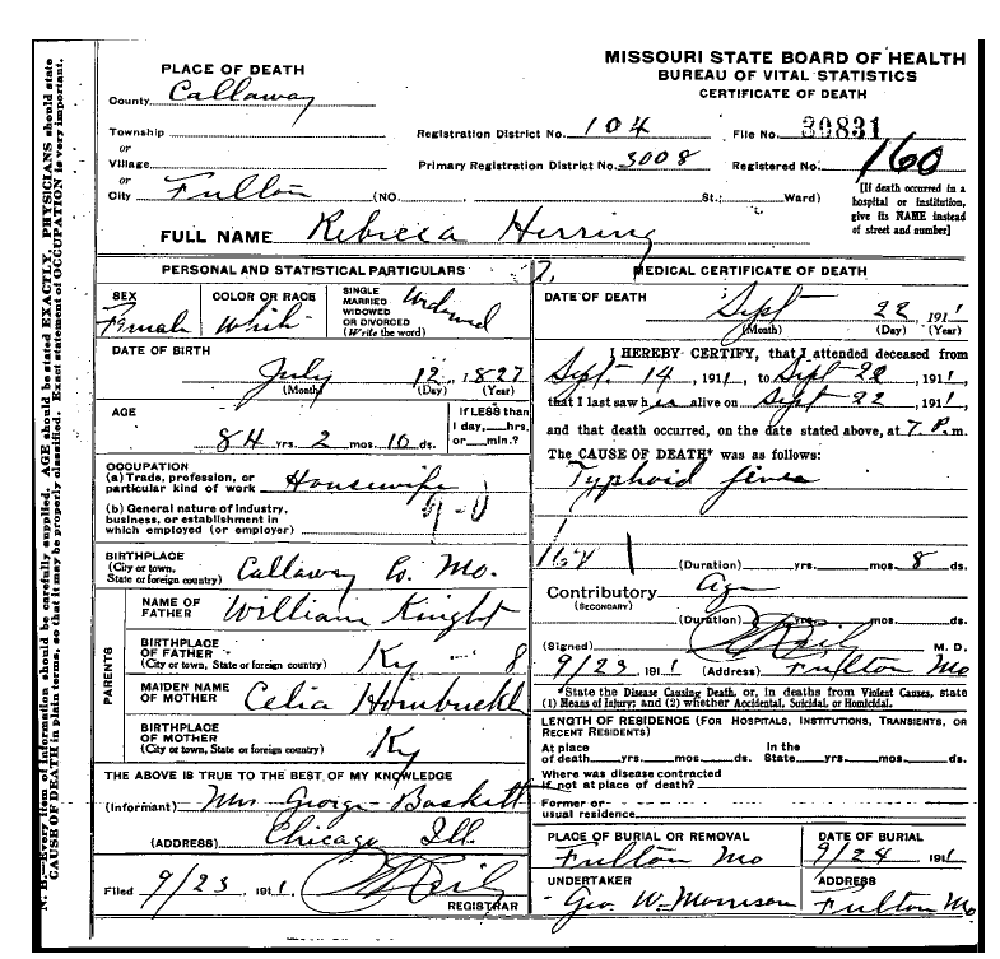 N. B.—Every item of information should be carefully supplied. AGE should be stated EXACTLY. PHYSICIANS should state
CAUSE OF DEATH in plain terms, so that it may be properly classified. Exact statement of OCCUPATION is very important.
MISSOURI STATE BOARD OF HEALTH
BUREAU OF VITAL STATISTICS
CERTIFICATE OF DEATH
PLACE OF DEATH
County Callaway
Township
or
Village
or
City Fulton (NO. St.; Ward)
Registration District No. 104 File No. 30831
Primary Registration District No. 3008 Registered No. 160
[If death occurred in a
hospital or institution,
give its NAME instead
of street and number]
FULL NAME Rebecca Herring
PERSONAL AND STATISTICAL PARTICULARS
SEX
Female
COLOR OR RACE
White
SINGLE
MARRIED
WIDOWED
OR DIVORCED
(Write the word)
Widowed
DATE OF BIRTH
July 12, 1827
(Month) (Day) (Year)
AGE
84 yrs. 2 mos. 10 ds.
If LESS than
1 day, hrs.
or min.?
OCCUPATION
(a) Trade, profession, or
particular kind of work Housewife
(b) General nature of industry,
business, or establishment in
which employed (or employer)
BIRTHPLACE
(City or town,
State or foreign country) Callaway Co. Mo.
PARENTS
NAME OF
FATHER William Knight
BIRTHPLACE
OF FATHER
(City or town, State or foreign country) Ky 8
MAIDEN NAME
OF MOTHER Celia Hornbuckl
BIRTHPLACE
OF MOTHER
(City or town, State or foreign country) Ky
THE ABOVE IS TRUE TO THE BEST OF MY KNOWLEDGE
(Informant) Mrs George Baskett
(ADDRESS) Chicago Ill.
Filed 9/23 1911
REGISTRAR
MEDICAL CERTIFICATE OF DEATH
DATE OF DEATH
Sept 22 1911
(Month) (Day) (Year)
I HEREBY CERTIFY, that I attended deceased from
Sept. 14, 1911, to Sept 22, 1911,
that I last saw her alive on Sept 22, 1911,
and that death occurred, on the date stated above, at 7 P.m.
The CAUSE OF DEATH* was as follows:
Typhoid fever
(Duration) yrs. mos. 8 ds.
Contributory Age
(SECONDARY)
(Duration) yrs. mos. ds.
(Signed) M. D.
9/23 1911 (Address) Fulton Mo
*State the Disease Causing Death, or, in deaths from Violent Causes, state
(1) Means of Injury; and (2) whether Accidental, Suicidal, or Homicidal.
LENGTH OF RESIDENCE (FOR HOSPITALS, INSTITUTIONS, TRANSIENTS, OR
RECENT RESIDENTS)
At place
of death yrs. mos. ds.
In the
State yrs. mos. ds.
Where was disease contracted
if not at place of death?
Former or
usual residence
PLACE OF BURIAL OR REMOVAL
Fulton Mo
DATE OF BURIAL
9/24 1911
UNDERTAKER
Geo. W. Morrison
ADDRESS
Fulton Mo